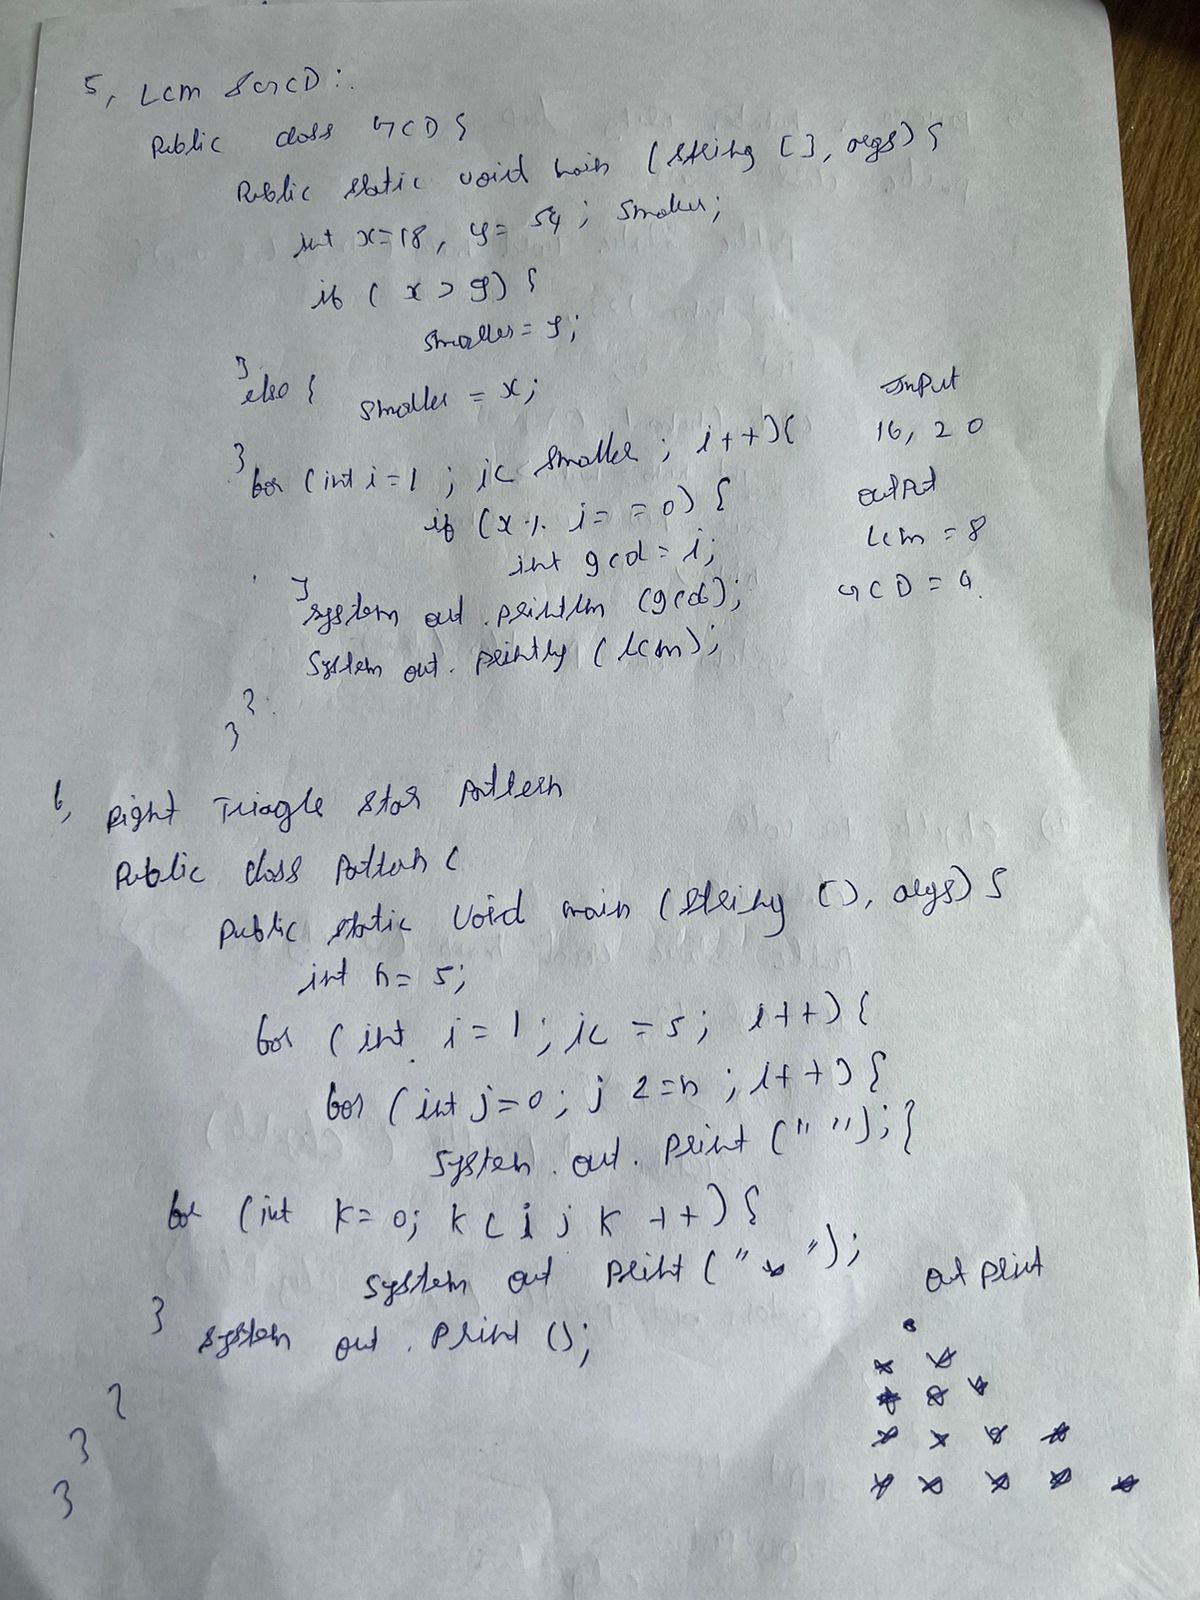 5, Lcm & GCD:.
Public class GCD {
Public static void main (string [], args) {
int x=18, y= 54; smaller;
if ( x > y) {
smaller = y;
}
else { smaller = x;
}
for (int i=1 ; i< smaller ; i++){
if (x % i = = 0) {
int gcd = i;
}
system out. println (gcd);
System out. println (lcm);
}
}
Input
16, 20
output
Lcm = 8
GCD = 4.
6, Right Triagle star pattern
Public class Pattern {
Public static void main (string [], args) {
int n= 5;
for (int i = 1 ; i< = 5; i++) {
for (int j=0; j 2=n ; i++) {
system. out. print (" "); }
for (int k= 0; k < i ; k ++) {
system out print (" * ");
}
system out. print ();
}
}
}
out print
*
* *
* * *
* * * *
* * * * *